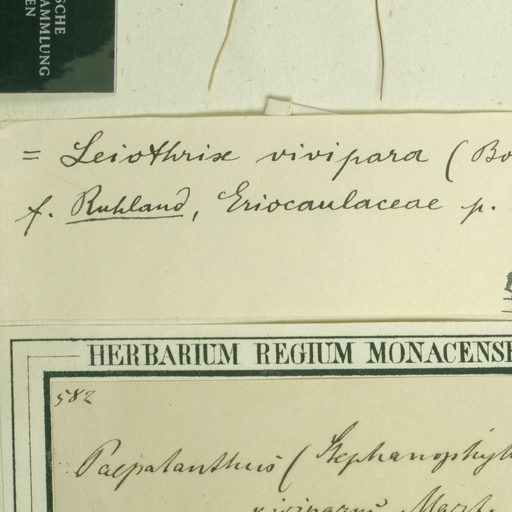 SCHE
AMMLUNG
EN
= Leiothrix vivipara (Bo
f. Ruhland, Eriocaulaceae p.
HERBARIUM REGIUM MONACENSE
582
Paepalanthus (Stephanophyll
viviparus Mart.